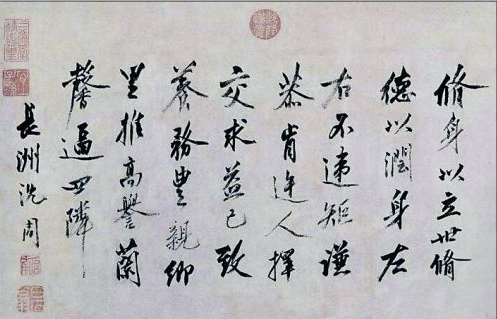 脩身以立世脩
德以潤身左
右不違矩謙
恭肯迕人擇
交求益己致
養務豊親鄉
里推高譽蘭
馨遍四隣
長洲沈周